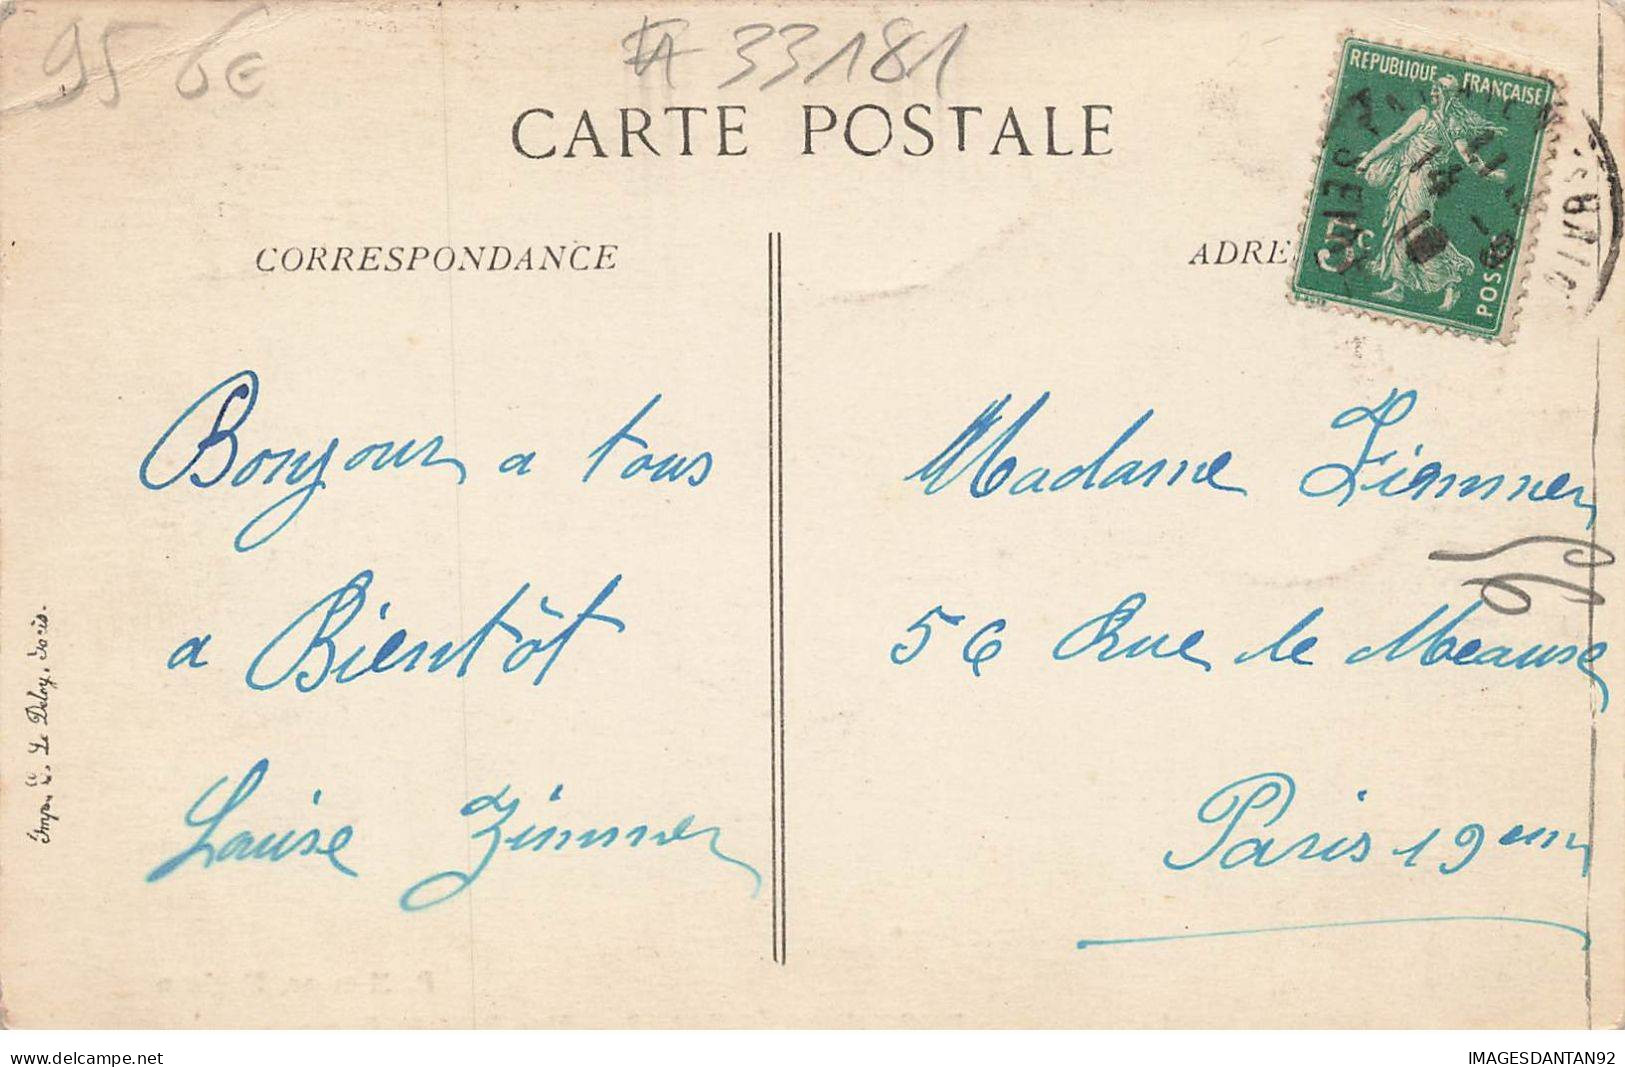 95 6€
33181
CARTE POSTALE
REPUBLIQUE FRANÇAISE
POSTES
CORRESPONDANCE
ADRE
Bonjour a tous
a Bientôt
Louise Zimmer
Madame Ziemmer
56 Rue de Meause
Paris 19 em
95
Imp. E. Le Deley, Paris.
delcampe.net
IMAGESDANTAN92